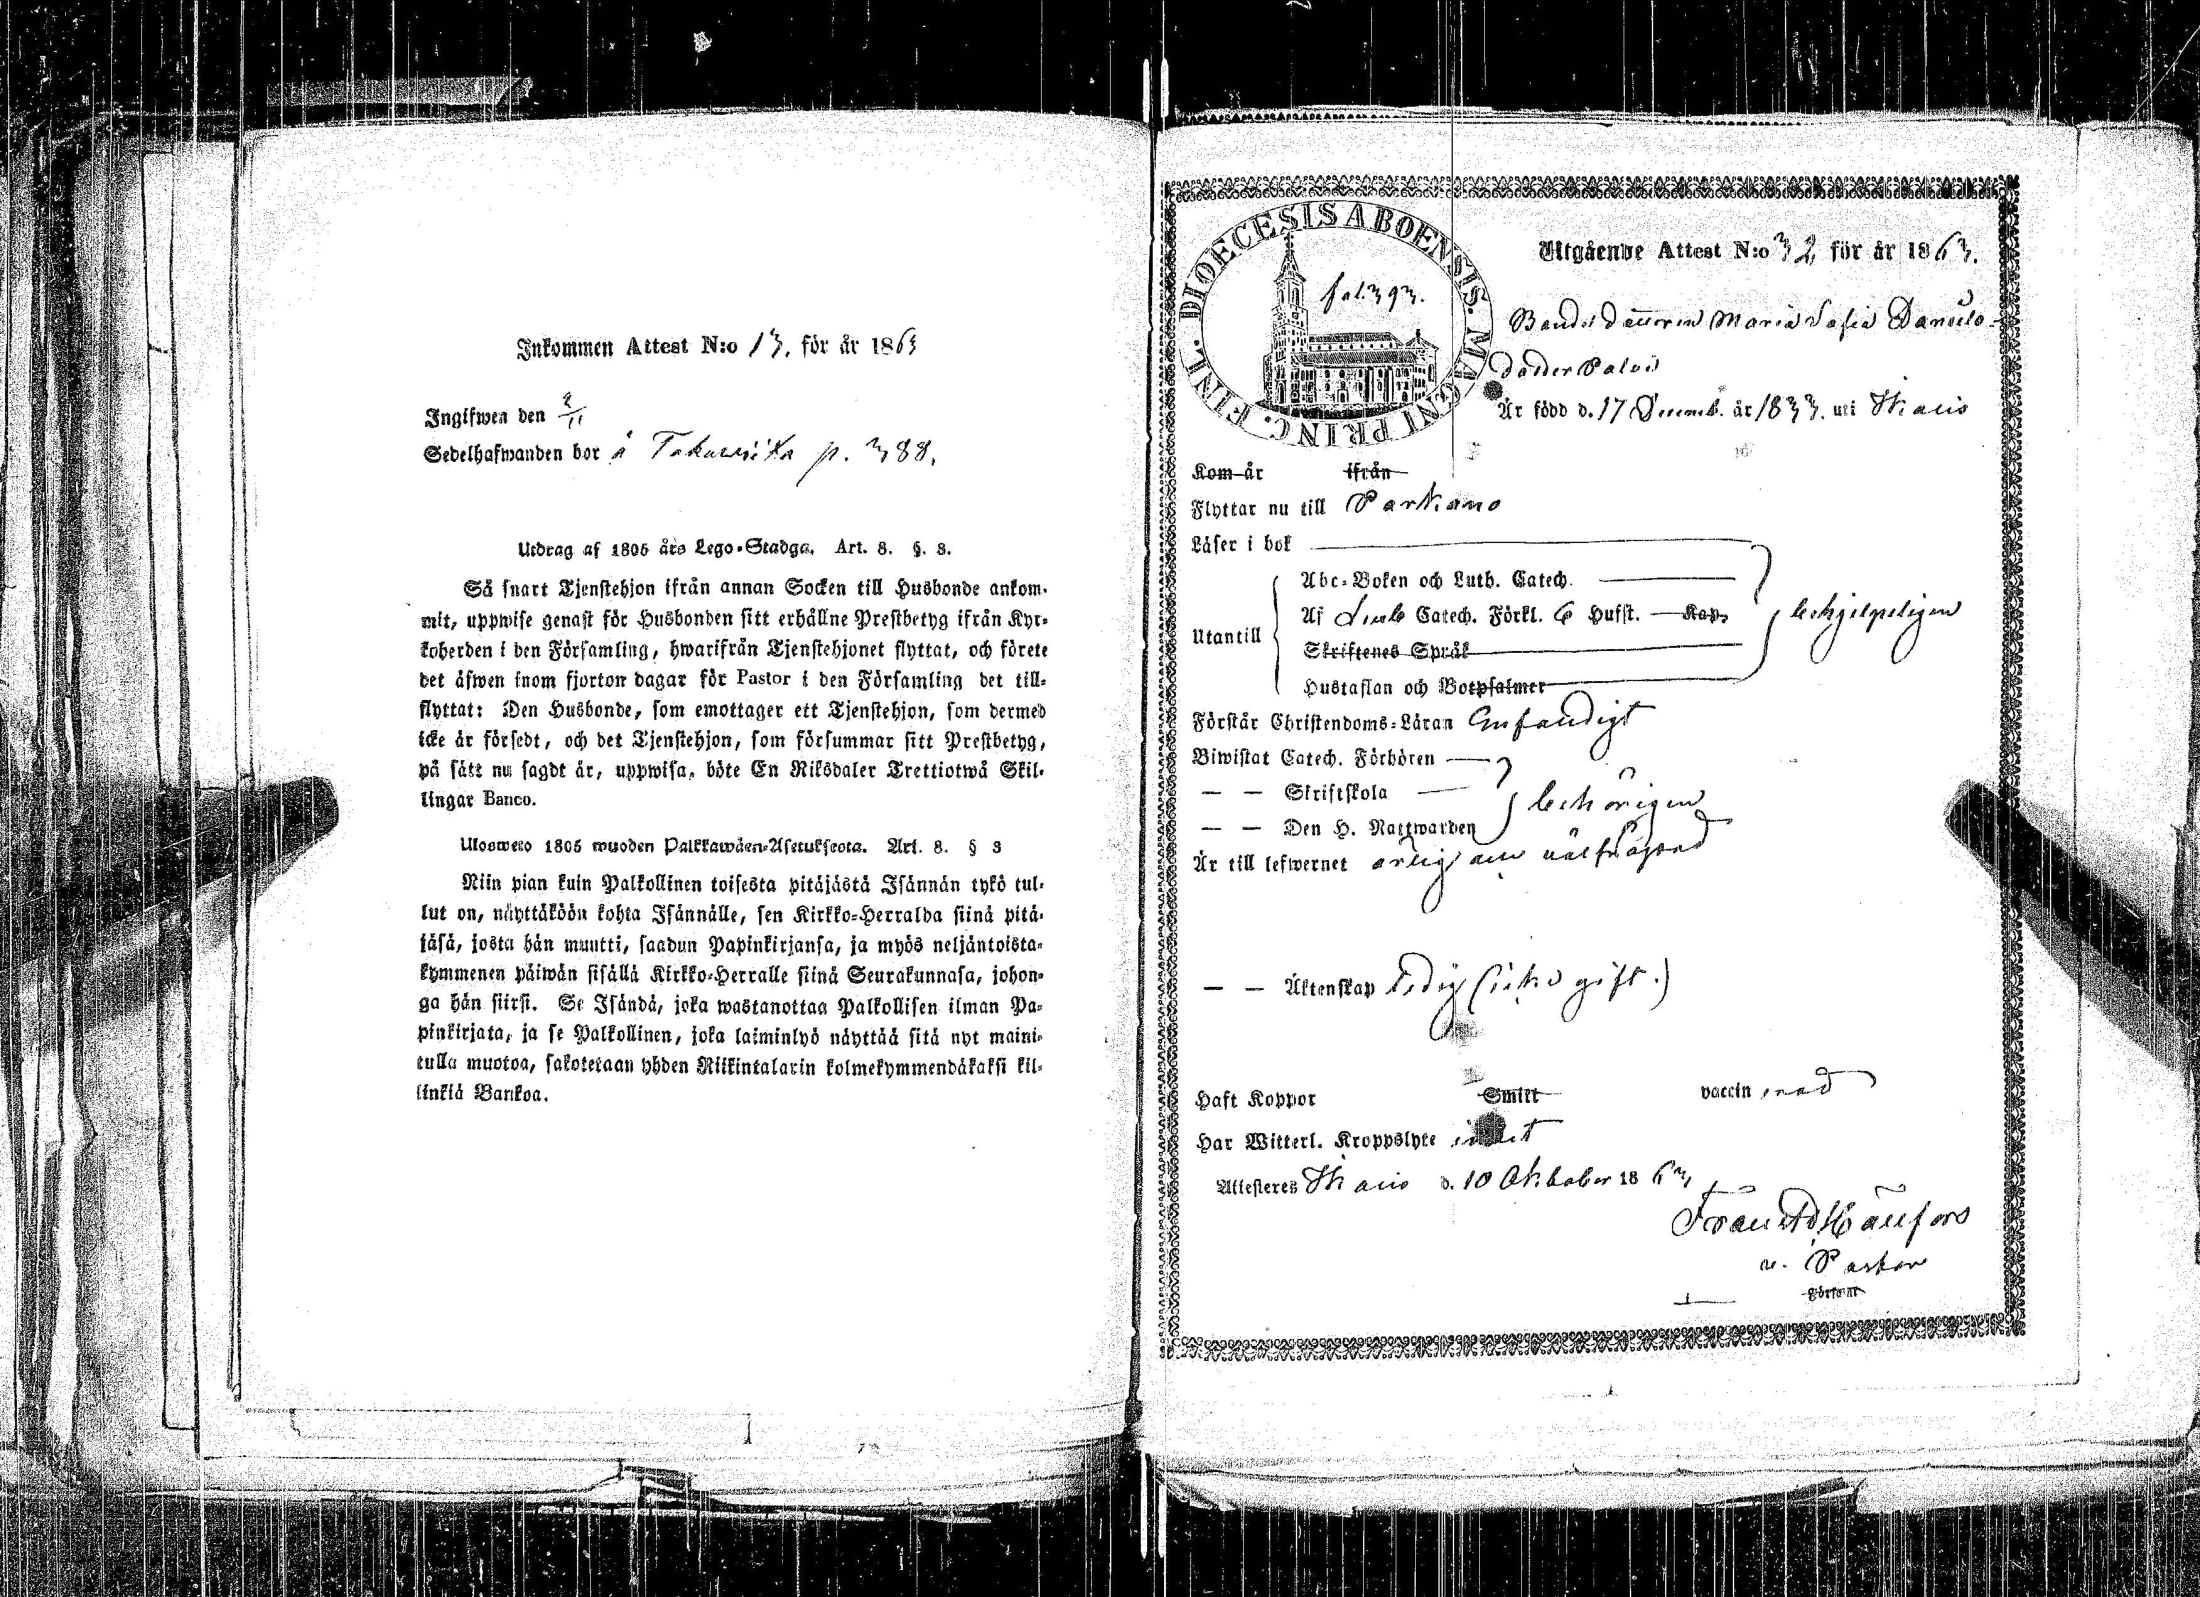 Inkommen Attest N:o 13. för år 1863
Ingifwen den 2/11
Sedelhafwanden bor å p. 388.
Utdrag af 1805 års Lego-Stadga. Art. 8. §. 8.
Så snart Tjenstehjon ifrån annan Socken till Husbonde ankom-
mit, uppwise genast för Husbonden sitt erhållne Prestbetyg ifrån Kyr-
koherden i den Församling, hwarifrån Tjenstehjonet flyttat, och förete
det äfwen inom fjorton dagar för Pastor i den Församling det till-
flyttat: Den Husbonde, som emottager ett Tjenstehjon, som dermed
icke är försedt, och det Tjenstehjon, som försummar sitt Prestbetyg,
på sätt nu sagdt är, uppwisa, böte En Riksdaler Trettiotwå Skil-
lingar Banco.
Ulosweto 1805 wuoden Palkkawäen-Asetuksesta. Art. 8. § 3
Niin pian kuin Palkollinen toisesta pitäjästä Isännän tykö tul-
lut on, näyttäköön kohta Isännälle, sen Kirkko-Herralda siinä pitä-
jäsä, josta hän muutti, saadun Papinkirjansa, ja myös neljäntoista-
kymmenen päiwän sisällä Kirkko-Herralle siinä Seurakunnasa, johon-
ga hän siirsi. Se Isändä, joka wastanottaa Palkollisen ilman Pa-
pinkirjata, ja se Palkollinen, joka laiminlyö näyttää sitä nyt maini-
tulla muotoa, sakotetaan yhden Riikintalarin kolmekymmendäkaksi kil-
linkiä Bankoa.
DIOECESIS ABOENSIS. MAGNI PRINC. FINL.
fol. 393.
Utgående Attest N:o 32 för år 1863.
Maria Sofia Daniels-
dotter Palvis
Är född d. 17 Decemb. år 1833. uti Ikalis
Kom år ifrån
Flyttar nu till Parkano
Läser i bok
Abc-Boken och Luth. Catech.
Utantill Af Luth Catech. Förkl. 6 Hufst. Kap. behjelpeligen
Skriftenes Språk
Hustaflan och Botpsalmer
Förstår Christendoms-Läran Enfaldigt
Biwistat Catech. Förhören
— — Skriftskola behörigen
— — Den H. Nattwarden
Är till lefwernet ärlig och välfräjdad
— — Äktenskap ledig (icke gift.)
Haft Koppor Smitt vaccin med
Har Witterl. Kroppslyte intet
Attesteras Ikalis d. 10 Oktober 1863,
v. Pastor